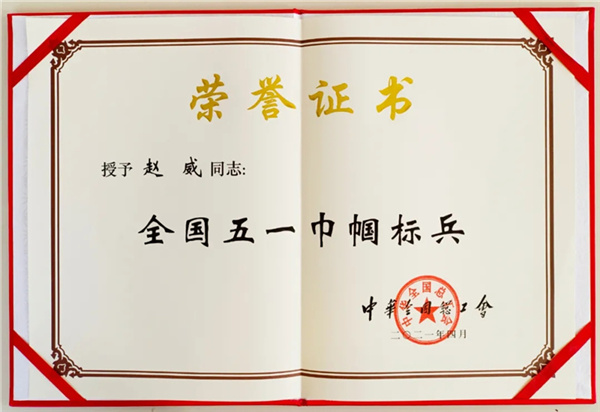 荣誉证书
授予 赵 威 同志:
全国五一巾帼标兵
中华全国总工会
二〇二一年四月